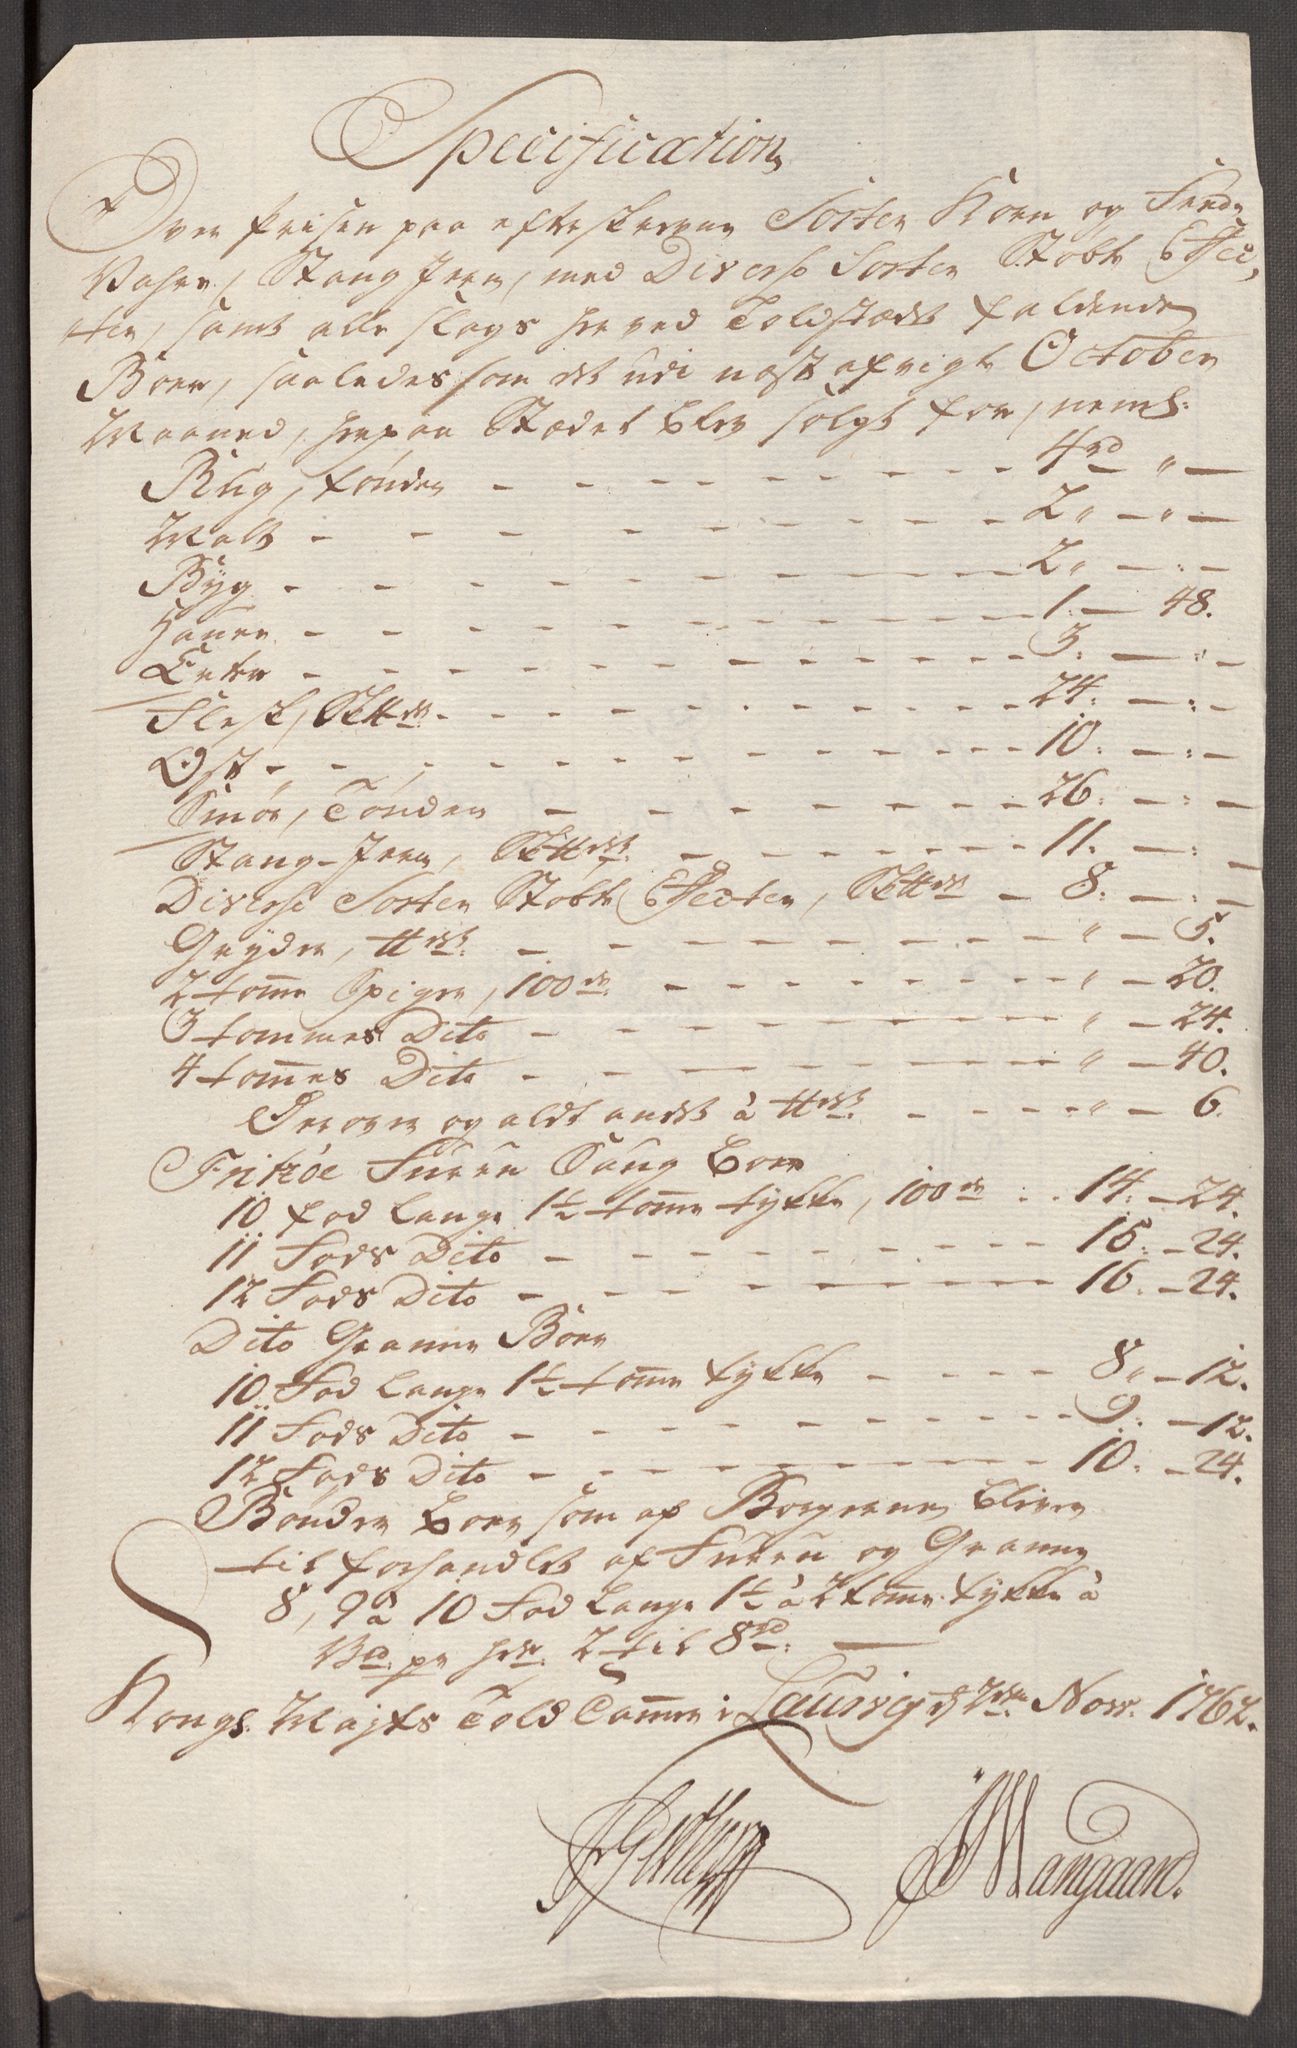 Specification
Over Prisen paa efterskrevne Sorter Korn og Fende
Vahre, Stang Jern, med Diverse Sorter Støbte Effec„
ter, samt alle slags her ved Toldstædet faldende
Borer, saaledes som det udi næst afvigte October
Maaned, her paa Stædet blev solgt for, neml:
Rug, tønden - - - 4 rd " —
Malt - - - 2 " — " —
Byg - - - 2 " — : —
Haver - - - 1 : — 48.
Erter - - - 3 : — : —
Flesk, Sk℔det - - - 24 : — : —
Ost - - - 10 : — : —
Smør, Tønden - - - 26 : — : —
Stang-Jern, Sk℔det - - - 11 : — : —
Diverse Sorter Støbte Effecter, Sk℔det - 8 : — : —
Gryder, ℔det - - - " — 5.
2 tom̄e Spiger, 100de - - - " — 20.
3 tommes Dito - - - " — 24.
4 tom̄es Dito - - - " — 40.
Større og aldt andet à ℔det - - - " — 6.
Fritzøe Furru Saug Bord
10 fod Lange 1½ tom̄e tykke, 100de - - 14 : — 24.
11 Fods Dito - - - 15 : — 24.
12 Fods Dito - - - 16 : — 24.
Dito Granne Borer
10 Fod Lange 1½ tom̄e tykke - - - 8 " — 12.
11 Fods Dito - - - 9 : — 12.
12 Fods Dito - - - 10 : — 24.
Bønder Borer som af Borgerne bliver
til forhandlet af Furru og Granne
8, 9 à 10 Fod Lange 1½ à 2 tom̄e tykke à
pr 2 til 8 rd : —
Kongl. Majts Told Cam̄er i Laurvig d 7de Novr. 1762.
Wangaard.